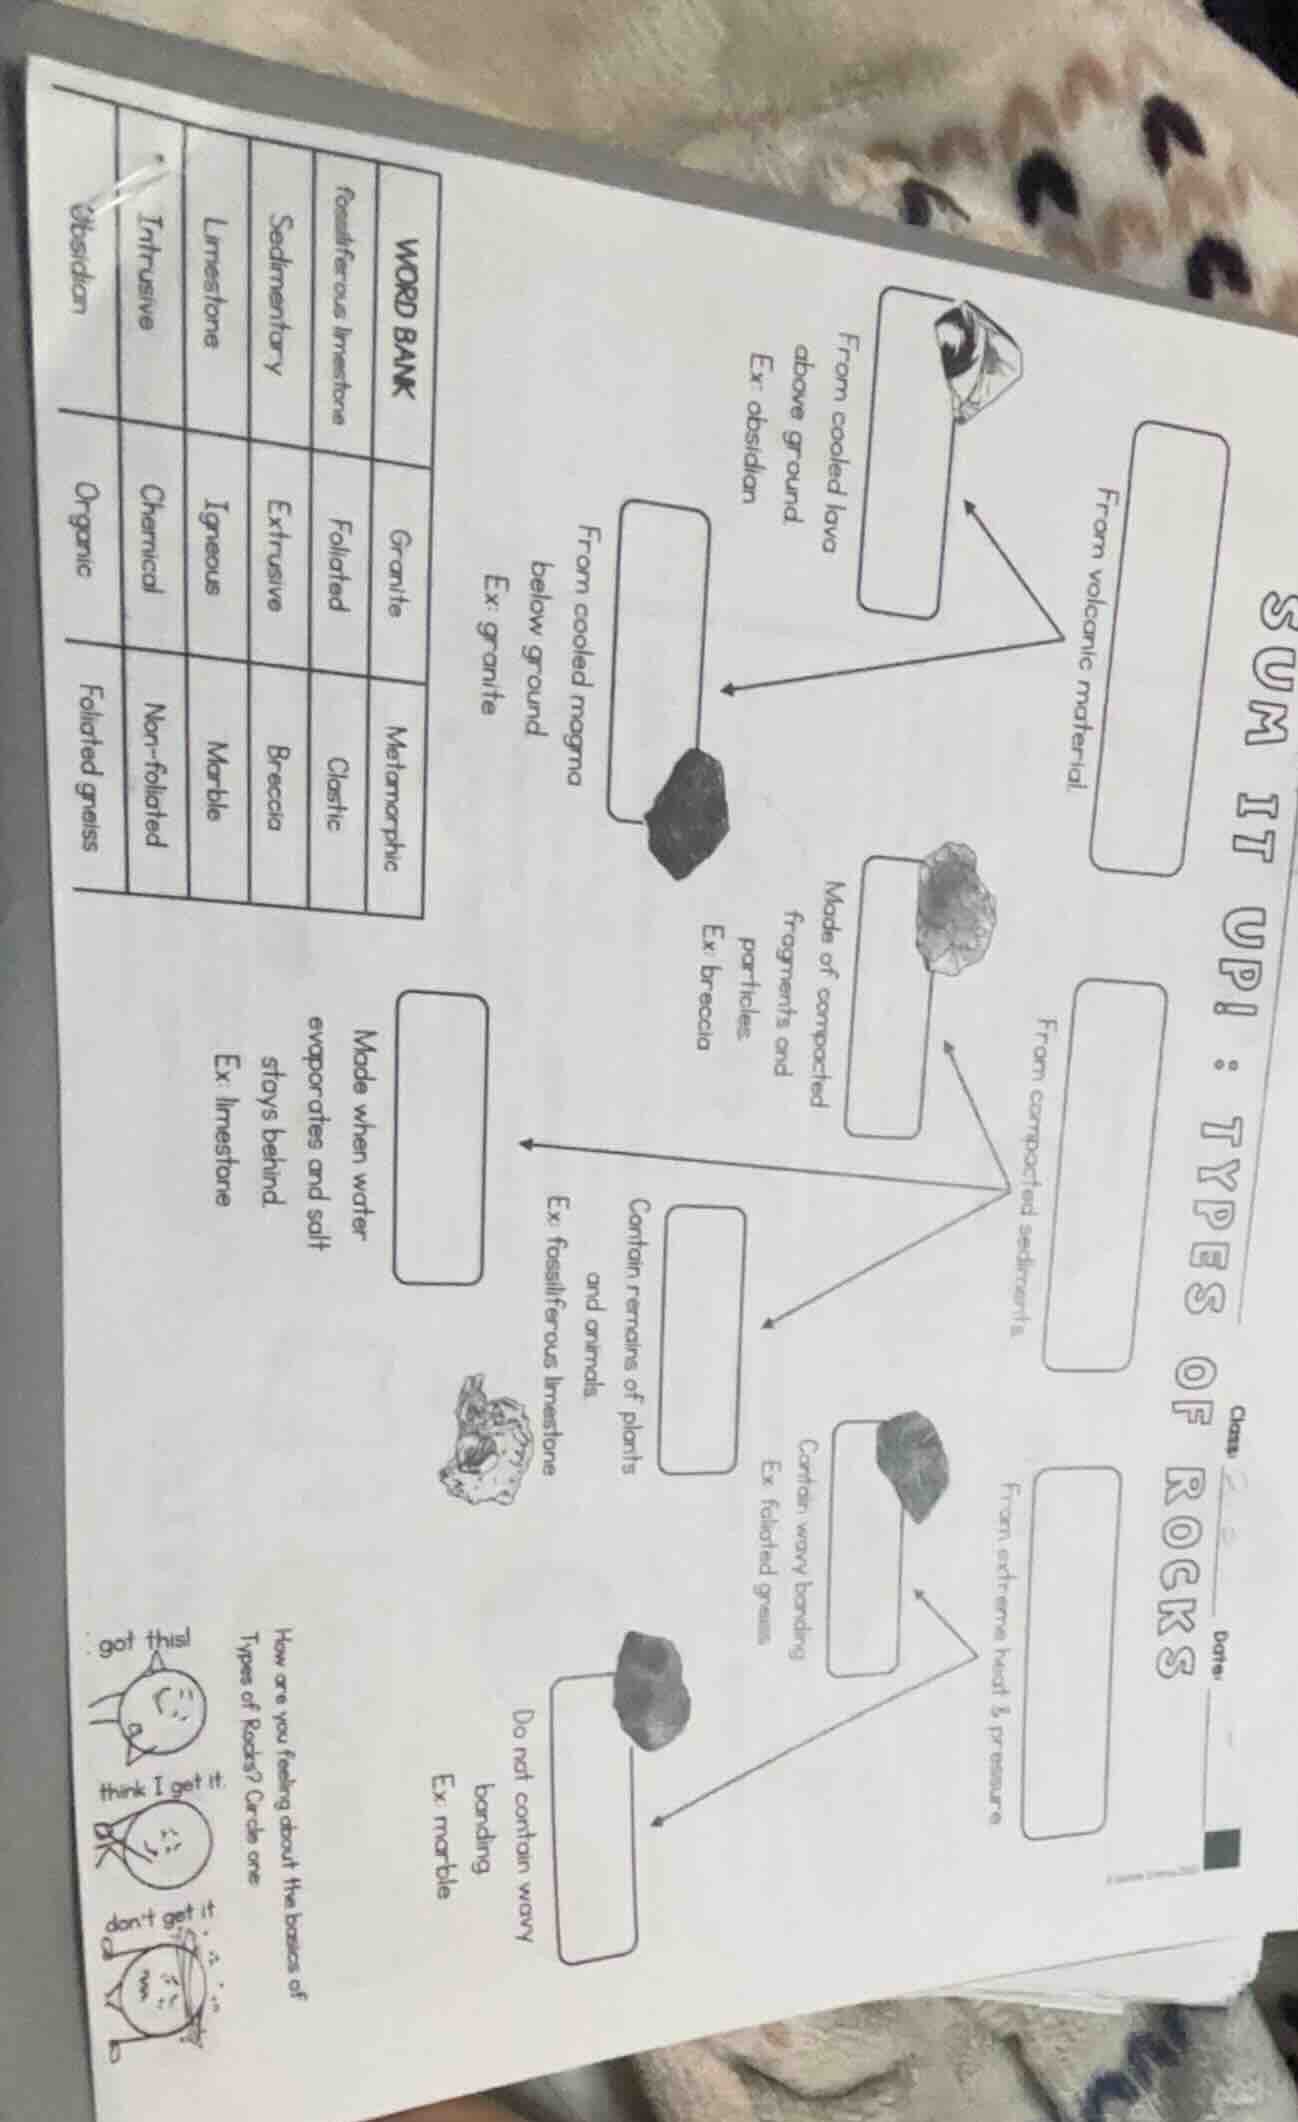 Class: Date:
SUM IT UP! : TYPES OF ROCKS
From volcanic material.
From compacted sediments.
From extreme heat & pressure
From cooled lava
above ground.
Ex: obsidian
From cooled magma
below ground.
Ex: granite
Made of compacted
fragments and
particles.
Ex: breccia
Made when water
evaporates and salt
stays behind.
Ex: limestone
Contain remains of plants
and animals.
Ex: fossiliferous limestone
Contain wavy banding
Ex: foliated gneiss
Do not contain wavy
banding
Ex: marble
WORD BANK Granite Metamorphic
fossiliferous limestone Foliated Clastic
Sedimentary Extrusive Breccia
Limestone Igneous Marble
Intrusive Chemical Non-foliated
Obsidian Organic Foliated gneiss
How are you feeling about the basics of
Types of Rocks? Circle one
got this!
think I get it
OK
don't get it